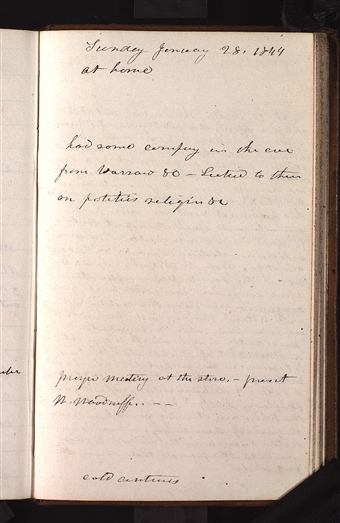 Sunday January 28. 1844
at home
had some company in the eve
from Warsaw &c - Lectured to them
on politics religion &c
prayer meeting at the store. - preset
W. Woodruff. - -
cold